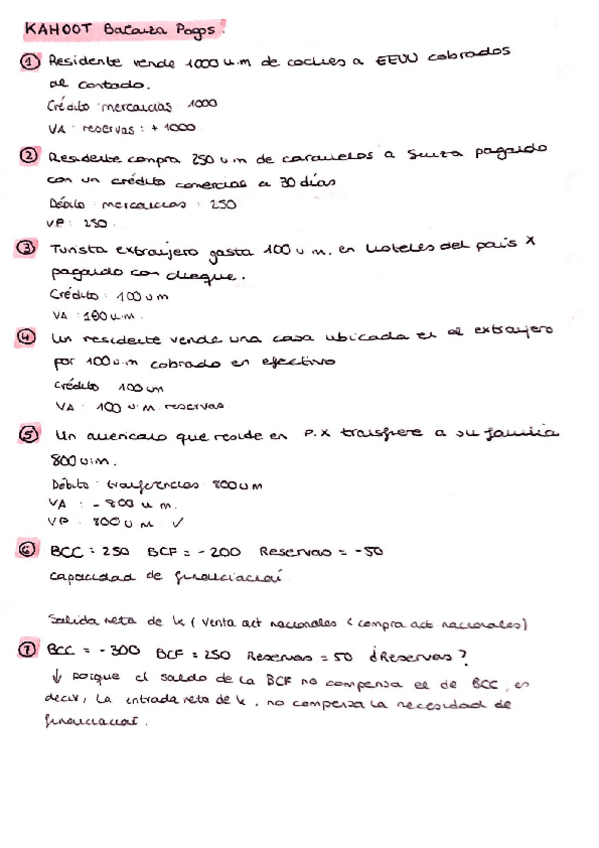 KAHOOT Balanza Pagos:
① Residente vende 1000 u.m de coches a EEUU cobrados
al contado.
Crédito mercancías 1000
VA reservas: +1000
② Residente compra 250 u.m de caramelos a Suiza pagando
con un crédito comercial a 30 días
Débito mercancías: 250
VP: 250.
③ Turista extranjero gasta 100 u m. en hoteles del país X
pagando con cheque.
Crédito: 100 u m
VA: 100 u.m.
④ Un residente vende una casa ubicada en el extranjero
por 100 u.m cobrado en efectivo
Crédito 100 um
VA 100 u.m. reservas
⑤ Un americano que reside en P.X transfiere a su familia
800 u.m.
Débito transferencias 800 u m
VA : - 800 u m.
VP 800 u m ✓
⑥ BCC = 250 BCF = - 200 Reservas = -50
capacidad de financiación
Salida neta de k (venta act nacionales < compra act nacionales)
⑦ BCC = - 300 BCF = 250 Reservas = 50 ¿Reservas?
↓ porque el saldo de la BCF no compensa el de BCC, es
decir, la entrada neta de k. no compensa la necesidad de
financiación.